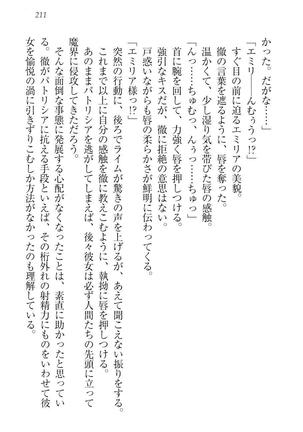 211
かった。だが──。
「エミリー──んむぅうっ!?」
徹の言葉を遮り、唇を奪った。
すぐ目の前に迫るエミリアの美貌。
温かくて、少し湿り気を帯びた唇の感触。
「んっ……ちゅむっ、んぅっ……ちゅっ」
首に腕を回して、力強く唇を押しつける。
強引なキスだが、徹に拒絶の意思はない。
戸惑いながらも唇の柔らかさが鮮明に伝わってくる。
「エミリア様っ!?」
突然の行動に、後ろでライムが驚きの声を上げるが、あえて聞こえない振りをする。
これまで以上に自分の感触を徹に教えこむように、執拗に唇を押しつける。
あのままパトリシアを逃がしてしまえば、後々彼女は必ず人間たちの先頭に立って
魔界に侵攻してきただろう。
そんな面倒な事態に発展する心配がなくなったことは、素直に助かったと思ってい
る。徹がパトリシアに抗える手段といえば、その桁外れの射精力にものをいわせ彼
女を愉悦の渦に引きずりこむしか方法がなかったのも理解している。